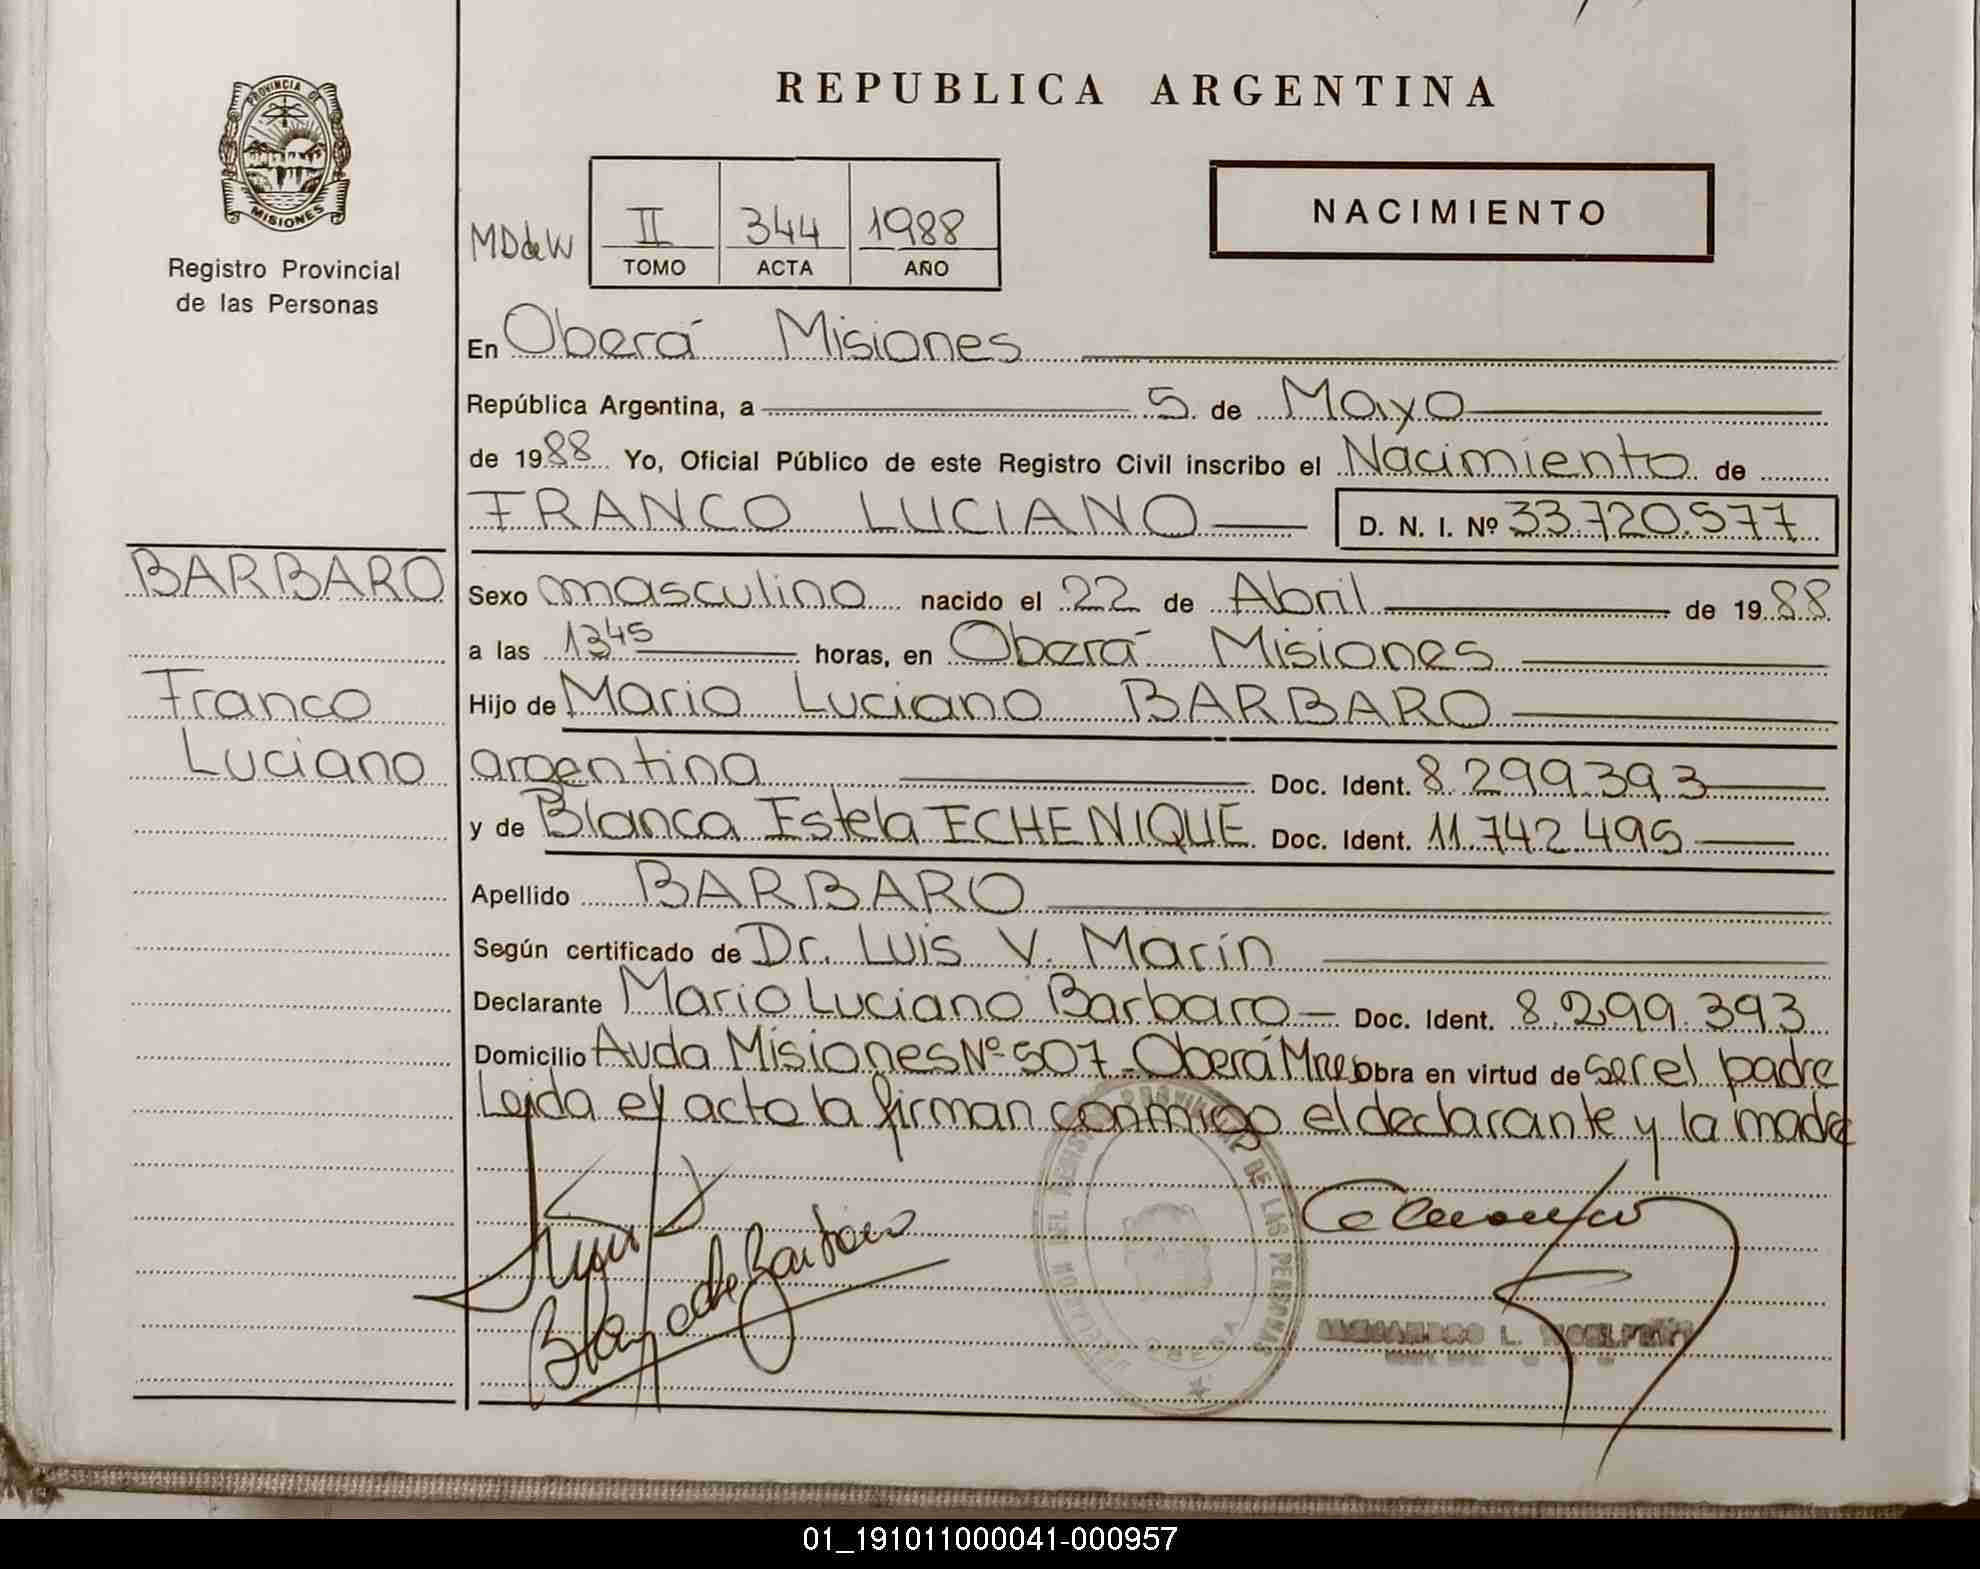 REPUBLICA ARGENTINA
PROVINCIA DE
MISIONES
Registro Provincial
de las Personas
MDdeW
II 344 1988
TOMO ACTA AÑO
NACIMIENTO
En Oberá Misiones
República Argentina, a 5 de Mayo
de 1988 Yo, Oficial Público de este Registro Civil inscribo el Nacimiento de
FRANCO LUCIANO D. N. I. Nº 33.720.577
BARBARO
Franco
Luciano
Sexo masculino nacido el 22 de Abril de 1988
a las 13 45 horas, en Oberá Misiones
Hijo de Mario Luciano BARBARO
argentina Doc. Ident. 8.299.393
y de Blanca Estela ECHENIQUE Doc. Ident. 11.742.495
Apellido BARBARO
Según certificado de Dr. Luis V. Marín
Declarante Mario Luciano Barbaro Doc. Ident. 8.299.393
Domicilio Avda Misiones Nº 507 - Oberá Mnes Obra en virtud de ser el padre
Leida el acto la firman conmigo el declarante y la madre
DE LAS PERSONAS
OBERA
01_191011000041-000957